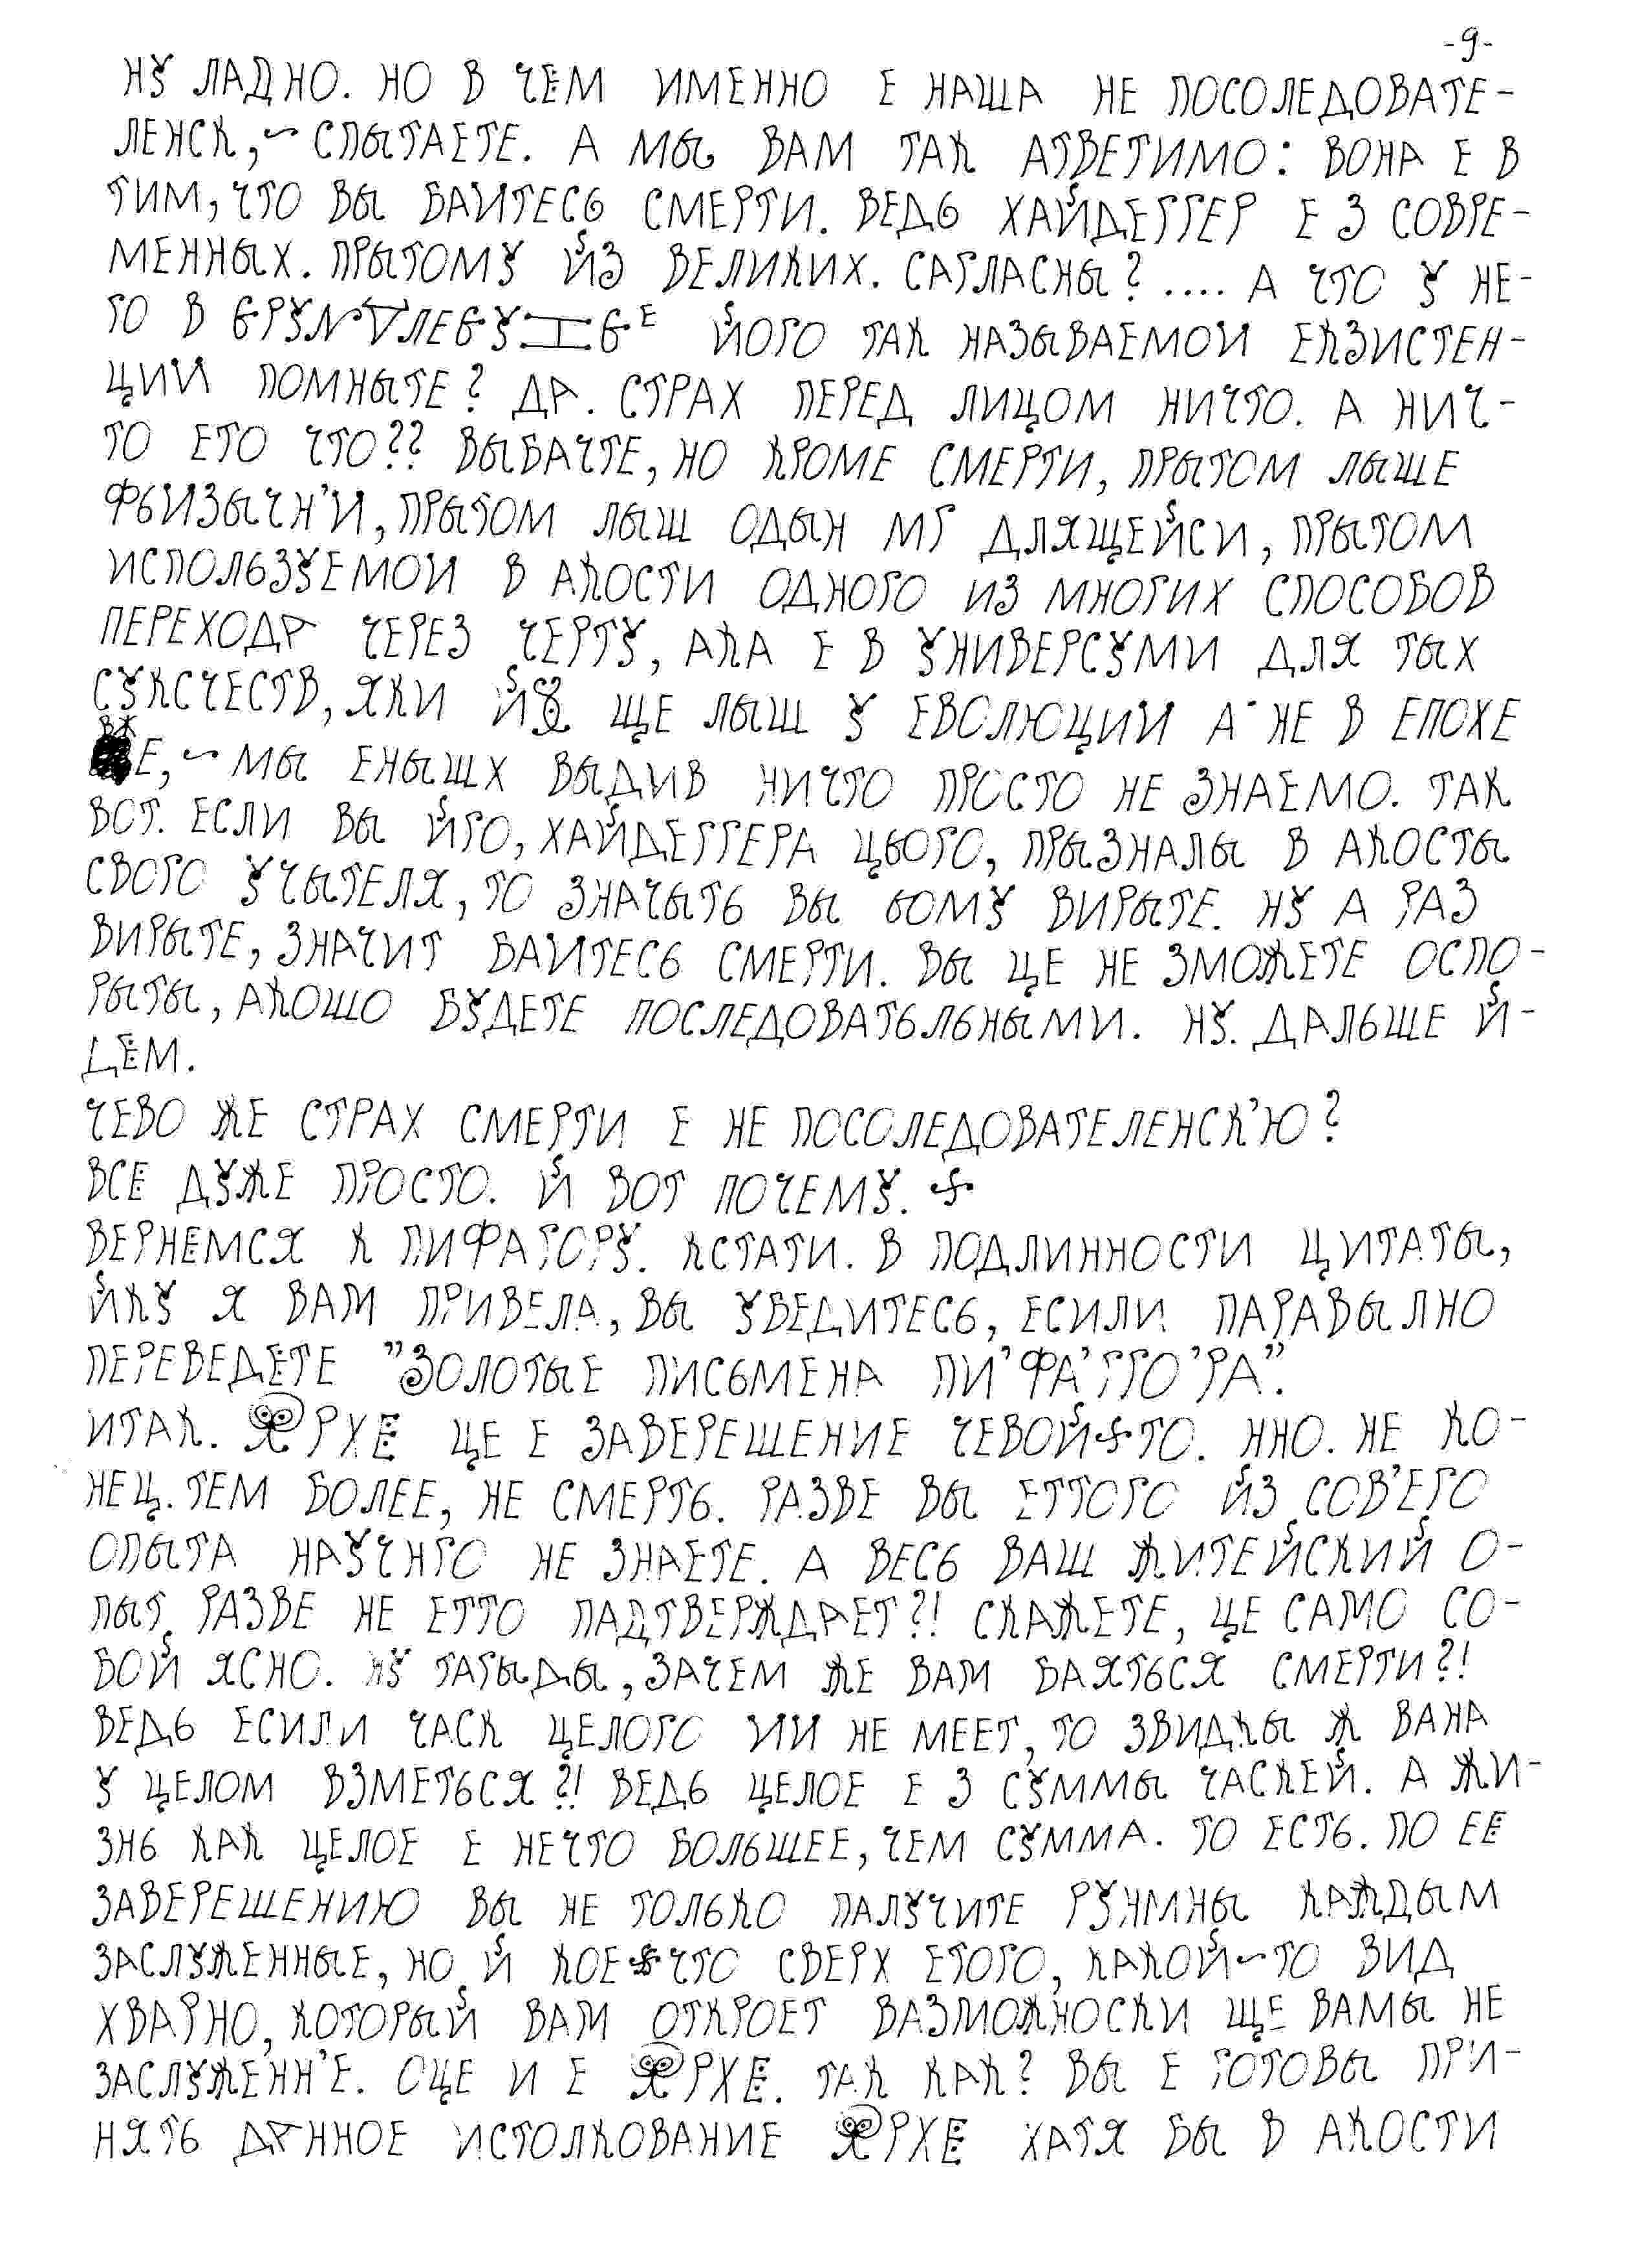 -9-
НУ ЛАДНО. НО В ЧЕМ ИМЕННО Е НАША НЕ ПОСОЛЕДОВАТЕ-
ЛЕНСК, ~ СПЫТАЕТЕ. А МЫ ВАМ ТАК АТВЕТИМО: ВОНА Е В
ТИМ, ЧТО ВЫ БАИТЕСЬ СМЕРТИ. ВЕДЬ ХАЙДЕГГЕР Е З СОВРЕ-
МЕННЫХ. ПРЫТОМУ ЙЗ ВЕЛИКИХ. САГЛАСНЫ? .... А ЧТО У НЕ-
ГО В ЙОГО ТАК НАЗЫВАЕМОИ ЕКЗИСТЕН-
ЦИИ ПОМНЫТЕ? ДА. СТРАХ ПЕРЕД ЛИЦОМ НИЧТО. А НИЧ-
ТО ЕТО ЧТО?? ВЫБАЧТЕ, НО КРОМЕ СМЕРТИ, ПРЫТОМ ЛЫШЕ
ФЬИЗЫЧН'И, ПРЫТОМ ЛЫШ ОДЫН МГ ДЛЯЩЕЙСИ, ПРЫТОМ
ИСПОЛЬЗУЕМОИ В АКОСТИ ОДНОГО ИЗ МНОГИХ СПОСОБОВ
ПЕРЕХОДА ЧЕРЕЗ ЧЕРТУ, АКА Е В УНИВЕРСУМИ ДЛЯ ТЫХ
СУКСЧЕСТВ, ЯКИ ЩЕ ЛЫШ У ЕВОЛЮЦИИ А НЕ В ЕПОХЕ
ВЖЕ, ~ МЫ ЕНЫЩХ ВЫДИВ НИЧТО ПРОСТО НЕ ЗНАЕМО. ТАК
ВОТ. ЕСЛИ ВЫ ЙГО, ХАЙДЕГГЕРА ЦЬОГО, ПРЫЗНАЛЫ В АКОСТЫ
СВОГО УЧЫТЕЛЯ, ТО ЗНАЧЫТЬ ВЫ ЬОМУ ВИРЫТЕ. НУ А РАЗ
ВИРЫТЕ, ЗНАЧИТ БАИТЕСЬ СМЕРТИ. ВЫ ЦЕ НЕ ЗМОЖЕТЕ ОСПО-
РЫТЫ, АКОШО БУДЕТЕ ПОСЛЕДОВАТЬЛЬНЫМИ. НУ. ДАЛЬШЕ Й-
ДЁМ.
ЧЕВО ЖЕ СТРАХ СМЕРТИ Е НЕ ПОСОЛЕДОВАТЕЛЕНСК'Ю?
ВСЁ ДУЖЕ ПРОСТО. Й ВОТ ПОЧЕМУ.
ВЕРНЁМСЯ К ПИФАГОРУ. КСТАТИ. В ПОДЛИННОСТИ ЦИТАТЫ,
ЙКУ Я ВАМ ПРИВЕЛА, ВЫ УВЕДИТЕСЬ, ЕСИЛИ ПАРАВЫЛНО
ПЕРЕВЕДЁТЕ "ЗОЛОТЫЕ ПИСЬМЕНА ПИ'ФА'ГГО'РА".
ИТАК. ЯРХЕ ЦЕ Е ЗАВЕРЕШЕНИЕ ЧЕВОЙ-ТО. ННО. НЕ КО-
НЕЦ. ТЕМ БОЛЕЕ, НЕ СМЕРТЬ. РАЗВЕ ВЫ ЕТТОГО ЙЗ СОВ'ЕГО
ОПЫТА НАУЧНГО НЕ ЗНАЕТЕ. А ВЕСЬ ВАШ ЖИТЕЙСКИЙ О-
ПЫТ РАЗВЕ НЕ ЕТТО ПАДТВЕРЖДАЕТ?! СКАЖЕТЕ, ЦЕ САМО СО-
БОЙ ЯСНО. НУ ТАГЫДЫ, ЗАЧЕМ ЖЕ ВАМ БАЯТЬСЯ СМЕРТИ?!
ВЕДЬ ЕСИЛИ ЧАСК ЦЕЛОГО ИИ НЕ МЕЕТ, ТО ЗВИДКЫ Ж ВАНА
У ЦЕЛОМ ВЗМЕТЬСЯ?! ВЕДЬ ЦЕЛОЕ Е З СУММЫ ЧАСКЕЙ. А ЖИ-
ЗНЬ КАК ЦЕЛОЕ Е НЕЧТО БОЛЬШЕЕ, ЧЕМ СУММА. ТО ЕСТЬ. ПО ЕЁ
ЗАВЕРЕШЕНИЮ ВЫ НЕ ТОЛЬКО ПАЛУЧИТЕ РУНМНЫ КАЖДЫМ
ЗАСЛУЖЕННЫЕ, НО Й КОЕ-ЧТО СВЕРХ ЕТОГО, КАКОЙ~ТО ВИД
ХВАРНО, КОТОРЫЙ ВАМ ОТКРОЕТ ВАЗМОЖНОСКИ ЩЕ ВАМЫ НЕ
ЗАСЛУЖЕНН'Е. ОЦЕ И Е ЯРХЕ. ТАК КАК? ВЫ Е ГОТОВЫ ПРИ-
НЯТЬ ДАННОЕ ИСТОЛКОВАНИЕ ЯРХЕ ХАТЯ БЫ В АКОСТИ